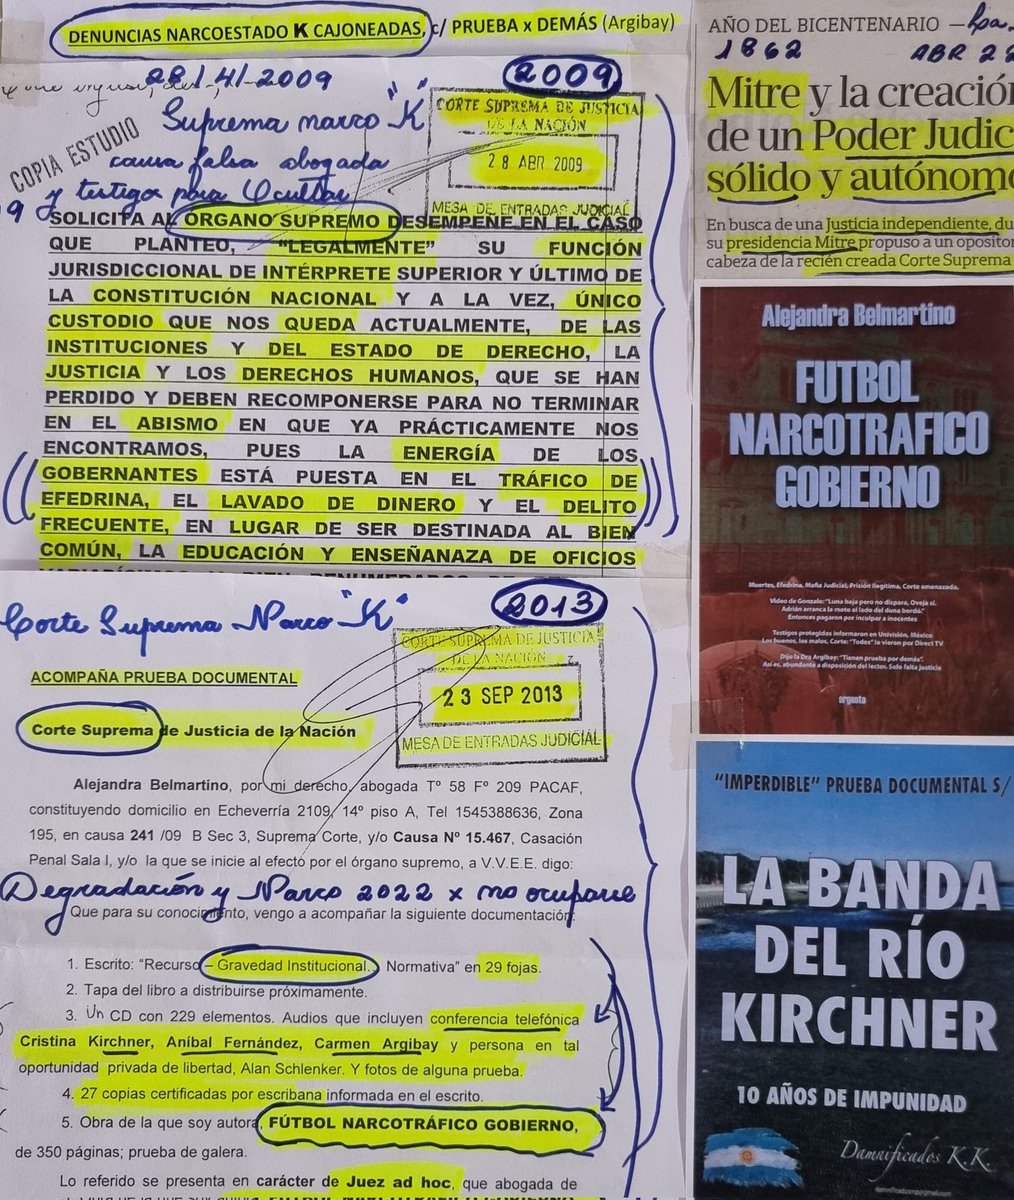 DENUNCIAS NARCOESTADO K CAJONEADAS, c/ PRUEBA x DEMÁS (Argibay)
28/4/-2009
2009
Suprema narco "K"
causa falsa abogada
y testigo para Ocultar
COPIA ESTUDIO
CORTE SUPREMA DE JUSTICIA
DE LA NACIÓN
28 ABR 2009
MESA DE ENTRADAS JUDICIAL
SOLICITA AL ÓRGANO SUPREMO DESEMPEÑE EN EL CASO
QUE PLANTEO, "LEGALMENTE" SU FUNCIÓN
JURISDICCIONAL DE INTÉRPRETE SUPERIOR Y ÚLTIMO DE
LA CONSTITUCIÓN NACIONAL Y A LA VEZ, ÚNICO
CUSTODIO QUE NOS QUEDA ACTUALMENTE, DE LAS
INSTITUCIONES Y DEL ESTADO DE DERECHO, LA
JUSTICIA Y LOS DERECHOS HUMANOS, QUE SE HAN
PERDIDO Y DEBEN RECOMPONERSE PARA NO TERMINAR
EN EL ABISMO EN QUE YA PRÁCTICAMENTE NOS
ENCONTRAMOS, PUES LA ENERGÍA DE LOS
GOBERNANTES ESTÁ PUESTA EN EL TRÁFICO DE
EFEDRINA, EL LAVADO DE DINERO Y EL DELITO
FRECUENTE, EN LUGAR DE SER DESTINADA AL BIEN
COMÚN, LA EDUCACIÓN Y ENSEÑANAZA DE OFICIOS
Corte Suprema Narco "K"
2013
CORTE SUPREMA DE JUSTICIA
DE LA NACIÓN
23 SEP 2013
MESA DE ENTRADAS JUDICIAL
ACOMPAÑA PRUEBA DOCUMENTAL
Corte Suprema de Justicia de la Nación
Alejandra Belmartino, por mi derecho, abogada Tº 58 Fº 209 PACAF,
constituyendo domicilio en Echeverría 2109, 14º piso A, Tel 1545388636, Zona
195, en causa 241 /09 B Sec 3, Suprema Corte, y/o Causa Nº 15.467, Casación
Penal Sala I, y/o la que se inicie al efecto por el órgano supremo, a V.V.E.E. digo:
Degradación y Narco 2022 x no ocuparse
Que para su conocimiento, vengo a acompañar la siguiente documentación:
1. Escrito: "Recurso – Gravedad Institucional. Normativa" en 29 fojas.
2. Tapa del libro a distribuirse próximamente.
3. Un CD con 229 elementos. Audios que incluyen conferencia telefónica
Cristina Kirchner, Aníbal Fernández, Carmen Argibay y persona en tal
oportunidad privada de libertad, Alan Schlenker. Y fotos de alguna prueba.
4. 27 copias certificadas por escribana informada en el escrito.
5. Obra de la que soy autora, FÚTBOL NARCOTRÁFICO GOBIERNO,
de 350 páginas; prueba de galera.
Lo referido se presenta en carácter de Juez ad hoc, que abogada de
AÑO DEL BICENTENARIO
1862
ABR 22
Mitre y la creación
de un Poder Judic
sólido y autónomo
En busca de una Justicia independiente, du
su presidencia Mitre propuso a un opositor
cabeza de la recién creada Corte Suprema
Alejandra Belmartino
FUTBOL
NARCOTRAFICO
GOBIERNO
Muertes, Efedrina, Mafia Judicial, Prisión Ilegítima, Corte amenazada.
Video de Gonzalo: "Luna baja pero no dispara, Oveja sí.
Adrián arranca la moto al lado del duna bordó."
Entonces pagaron por inculpar a inocentes
Testigos protegidos informaron en Univisión, México
Los buenos, los malos, Corte: "Todos" lo vieron por Direct TV
Dijo la Dra Argibay: "Tienen prueba por demás".
Así es, abundante a disposición del lector. Solo falta justicia
argenta
"IMPERDIBLE" PRUEBA DOCUMENTAL S/
LA BANDA
DEL RÍO
KIRCHNER
10 AÑOS DE IMPUNIDAD
Damnificados K.K.